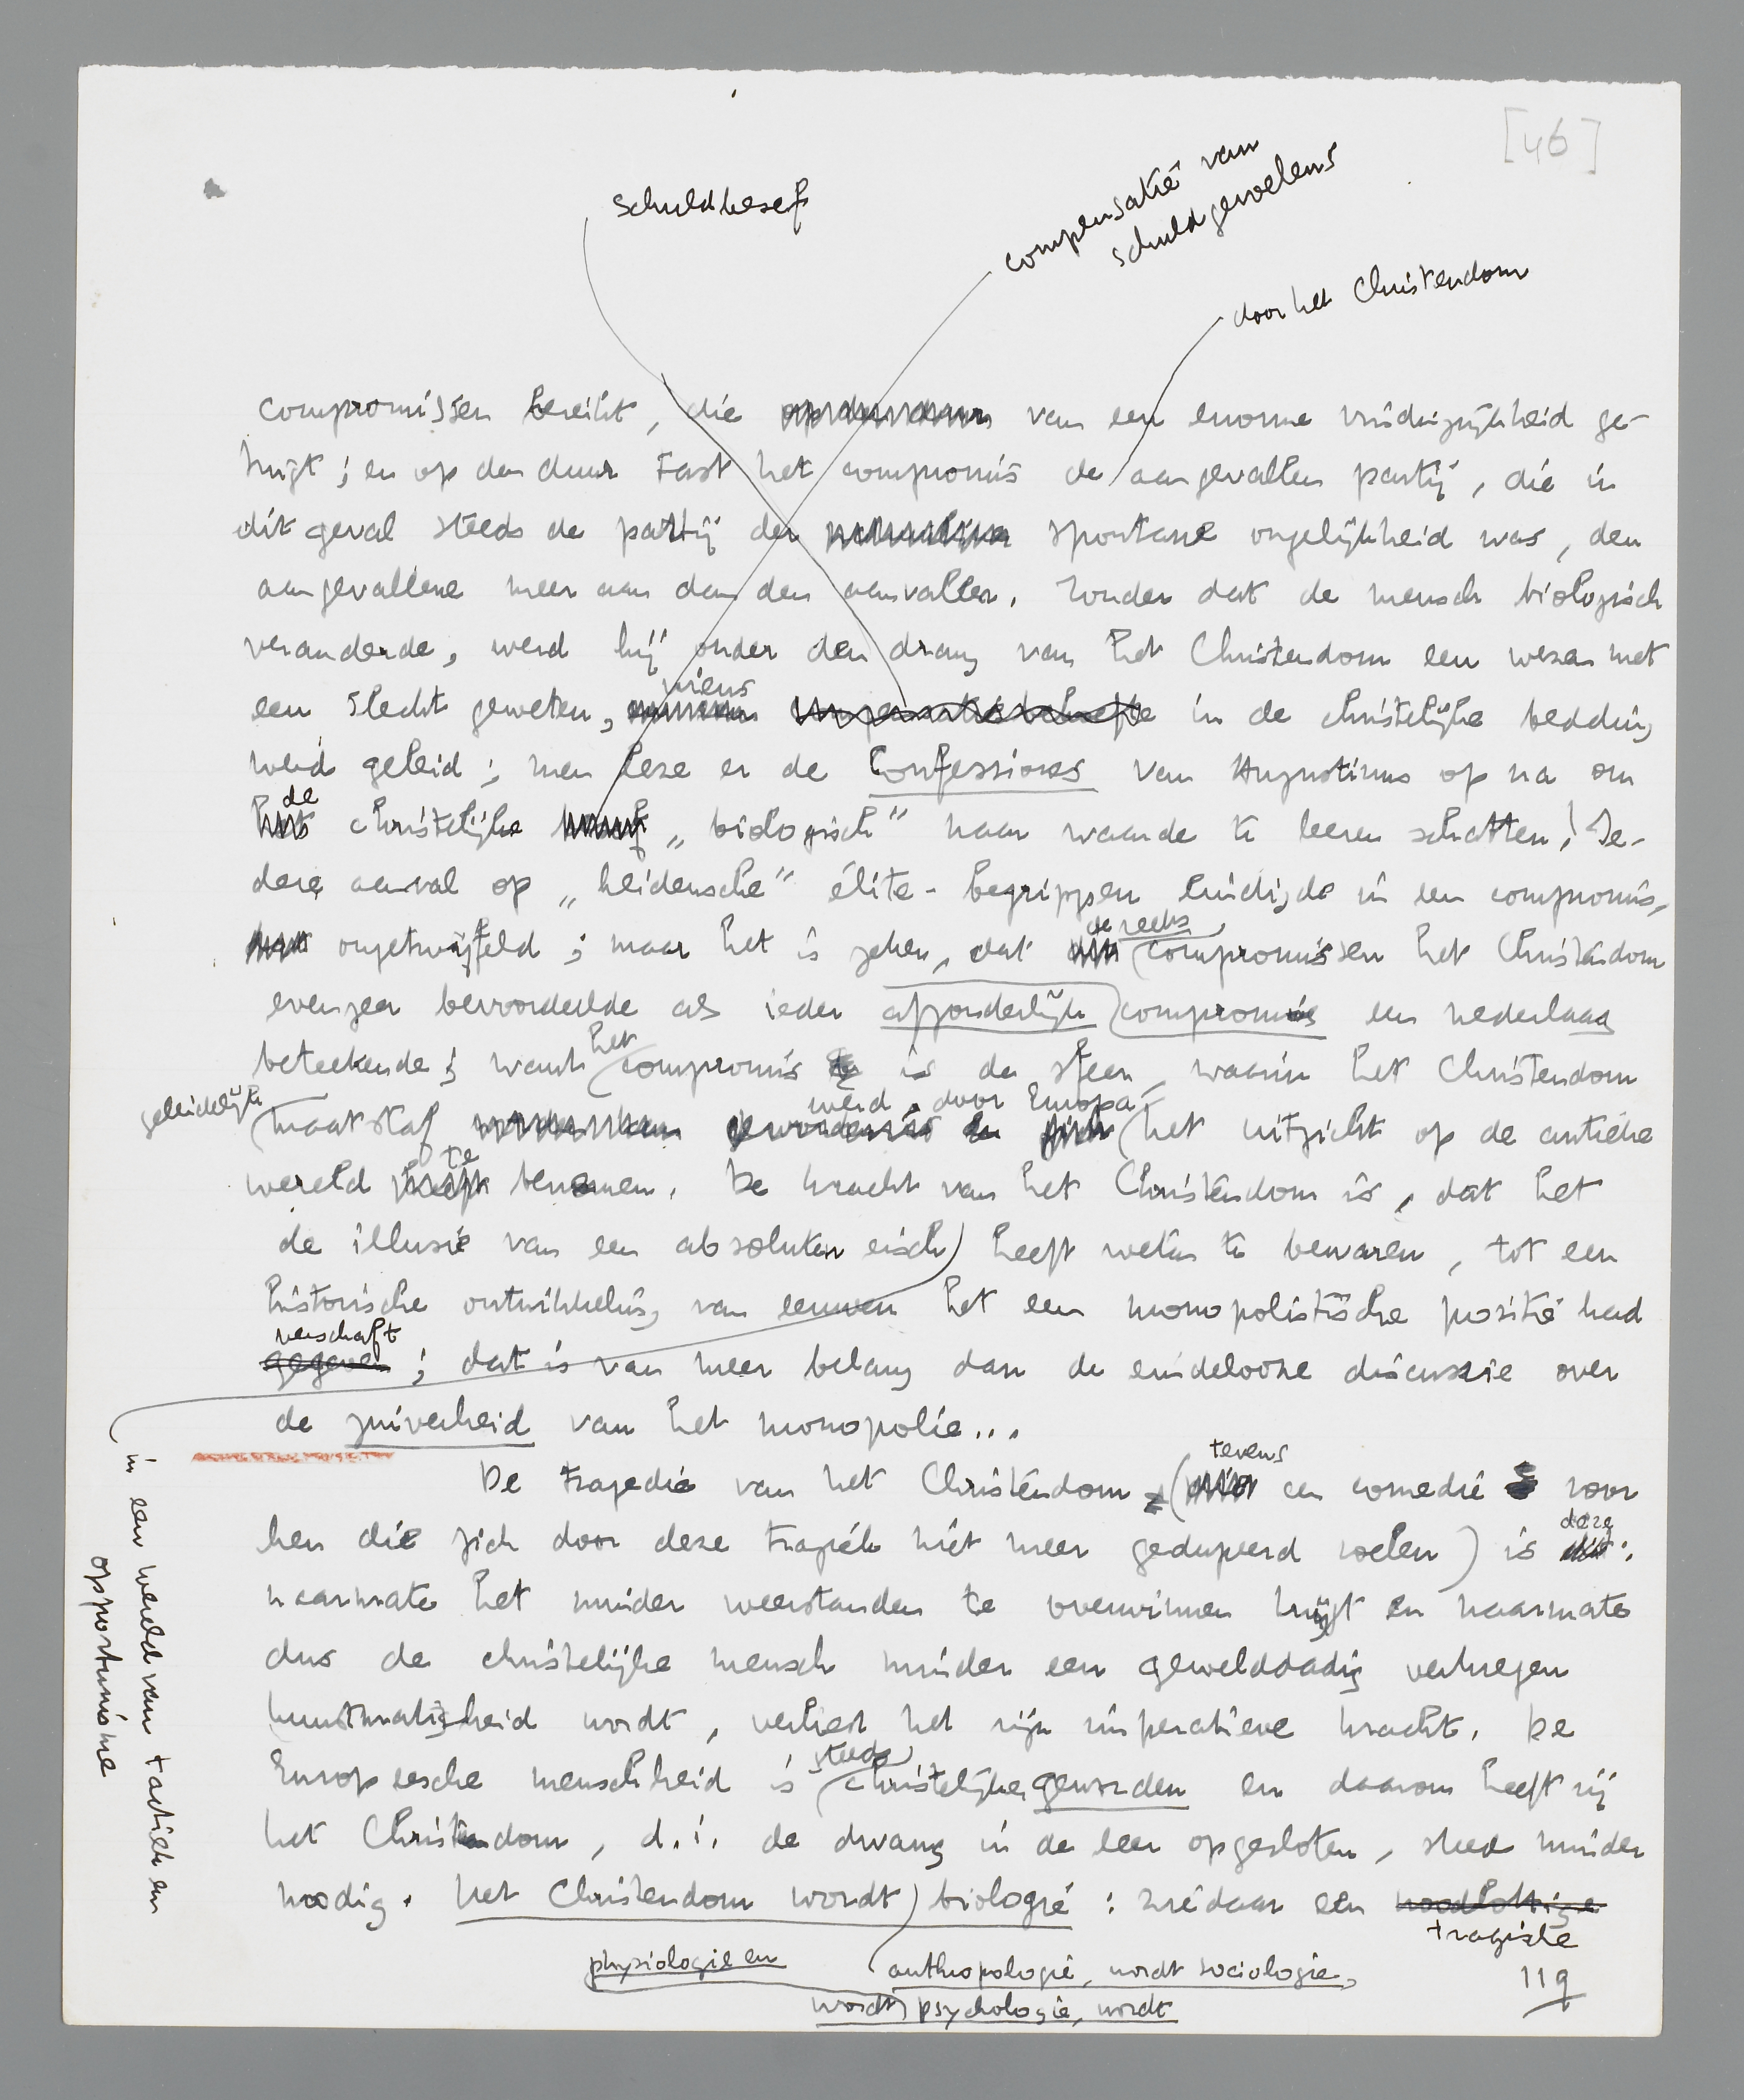 [46]
schuldbesef
compensatie van
schuldgevoelens
door het Christendom
compromissen bereikt, die van een enorme vindingrijkheid ge-
tuigt; en op den duur tast het compromis de aangevallen partij, die in
dit geval steeds de partij der spontane ongelijkheid was, den
aangevallene meer aan dan den aanvaller. Zonder dat de mensch biologisch
veranderde, werd hij onder den drang van het Christendom een wezen met
een slecht geweten, wiens in de christelijke bedding
werd geleid; men leze er de Confessiones van Augustinus op na om
de christelijke „biologisch" naar waarde te leeren schatten! Ie-
dere aanval op „heidensche" élite-begrippen eindigde in een compromis,
ongetwijfeld; maar het is zeker, dat de reeks compromissen het Christendom
evenzeer bevoordeelde als ieder afzonderlijk compromis een nederlaag
beteekende; want het compromis is de sfeer, waarin het Christendom
geleidelijk
maatstaf werd, door Europa het uitzicht op de antieke
wereld te benemen. De kracht van het Christendom is, dat het
de illusie van een absoluten eisch heeft weten te bewaren, tot een
historische ontwikkeling van eeuwen het een monopolistische positie had
verschaft
gegeven; dat is van meer belang dan de eindelooze discussie over
de zuiverheid van het monopolie...
in een wereld van tactiek en
opportunisme
De tragedie van het Christendom (tevens een comedie voor
hen die zich door deze tragiek niet meer gedupeerd voelen) is deze:
naarmate het minder weerstanden te overwinnen krijgt en naarmate
dus de christelijke mensch minder een gewelddadig verkregen
kunstmatigheid wordt, verliest het zijn imperatieve kracht. De
Europeesche menschheid is steeds christelijker geworden en daarom heeft zij
het Christendom, d.i. de dwang in de leer opgesloten, steeds minder
noodig. Het Christendom wordt biologie: ziedaar een noodlottige
tragische
physiologie en anthropologie, wordt sociologie,
wordt psychologie, wordt
119